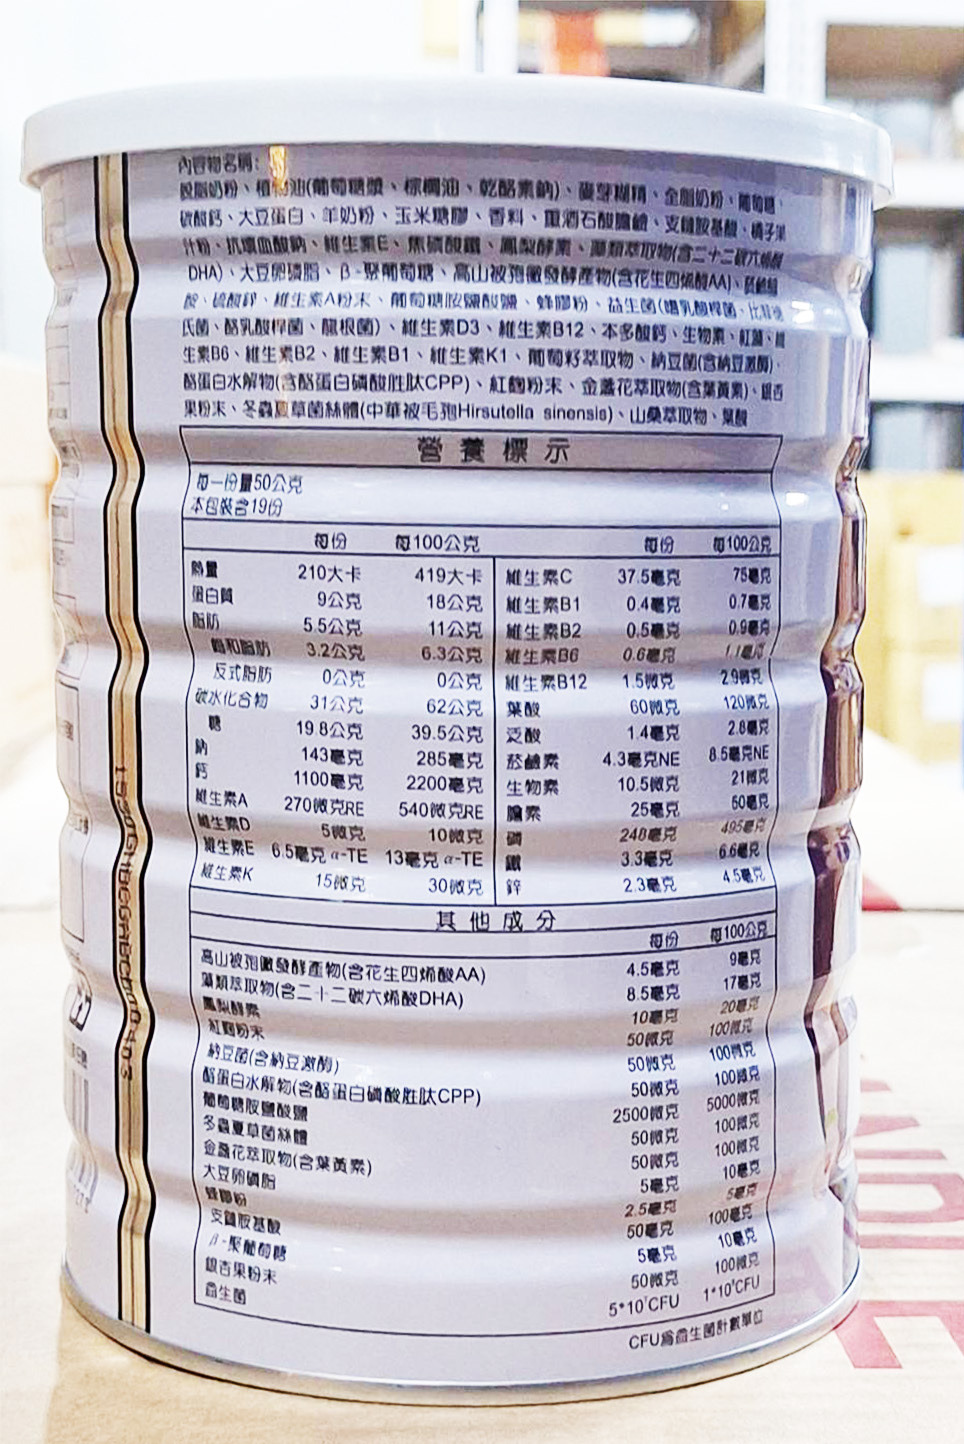 內容物名稱：
脫脂奶粉、植物油(葡萄糖漿、棕櫚油、乾酪素鈉)、麥芽糊精、全脂奶粉、葡萄糖、
碳酸鈣、大豆蛋白、羊奶粉、玉米糖膠、香料、重酒石酸膽鹼、支鏈胺基酸、橘子果
汁粉、抗壞血酸鈉、維生素E、焦磷酸鐵、鳳梨酵素、藻類萃取物(含二十二碳六烯酸
DHA)、大豆卵磷脂、β-聚葡萄糖、高山被孢黴發酵產物(含花生四烯酸AA)、菸鹼醯
胺、硫酸鋅、維生素A粉末、葡萄糖胺鹽酸鹽、蜂膠粉、益生菌(嗜乳酸桿菌、比菲德
氏菌、酪乳酸桿菌、龍根菌)、維生素D3、維生素B12、本多酸鈣、生物素、紅藻、維
生素B6、維生素B2、維生素B1、維生素K1、葡萄籽萃取物、納豆菌(含納豆激酶)、
酪蛋白水解物(含酪蛋白磷酸胜肽CPP)、紅麴粉末、金盞花萃取物(含葉黃素)、銀杏
果粉末、冬蟲夏草菌絲體(中華被毛孢Hirsutella sinensis)、山桑萃取物、葉酸
營養標示
每一份量50公克
本包裝含19份
每份 每100公克 每份 每100公克
熱量 210大卡 419大卡 維生素C 37.5毫克 75毫克
蛋白質 9公克 18公克 維生素B1 0.4毫克 0.7毫克
脂肪 5.5公克 11公克 維生素B2 0.5毫克 0.9毫克
飽和脂肪 3.2公克 6.3公克 維生素B6 0.6毫克 1.1毫克
反式脂肪 0公克 0公克 維生素B12 1.5微克 2.9微克
碳水化合物 31公克 62公克 葉酸 60微克 120微克
糖 19.8公克 39.5公克 泛酸 1.4毫克 2.8毫克
鈉 143毫克 285毫克 菸鹼素 4.3毫克NE 8.5毫克NE
鈣 1100毫克 2200毫克 生物素 10.5微克 21微克
維生素A 270微克RE 540微克RE 膽素 25毫克 50毫克
維生素D 5微克 10微克 磷 248毫克 495毫克
維生素E 6.5毫克 α-TE 13毫克 α-TE 鐵 3.3毫克 6.6毫克
維生素K 15微克 30微克 鋅 2.3毫克 4.5毫克
其他成分
每份 每100公克
高山被孢黴發酵產物(含花生四烯酸AA) 4.5毫克 9毫克
藻類萃取物(含二十二碳六烯酸DHA) 8.5毫克 17毫克
鳳梨酵素 10毫克 20毫克
紅麴粉末 50微克 100微克
納豆菌(含納豆激酶) 50微克 100微克
酪蛋白水解物(含酪蛋白磷酸胜肽CPP) 50微克 100微克
葡萄糖胺鹽酸鹽 2500微克 5000微克
冬蟲夏草菌絲體 50微克 100微克
金盞花萃取物(含葉黃素) 50微克 100微克
大豆卵磷脂 5毫克 10毫克
蜂膠粉 2.5毫克 5毫克
支鏈胺基酸 50毫克 100毫克
β-聚葡萄糖 5毫克 10毫克
銀杏果粉末 50微克 100微克
益生菌 CFU CFU
CFU為益生菌計數單位